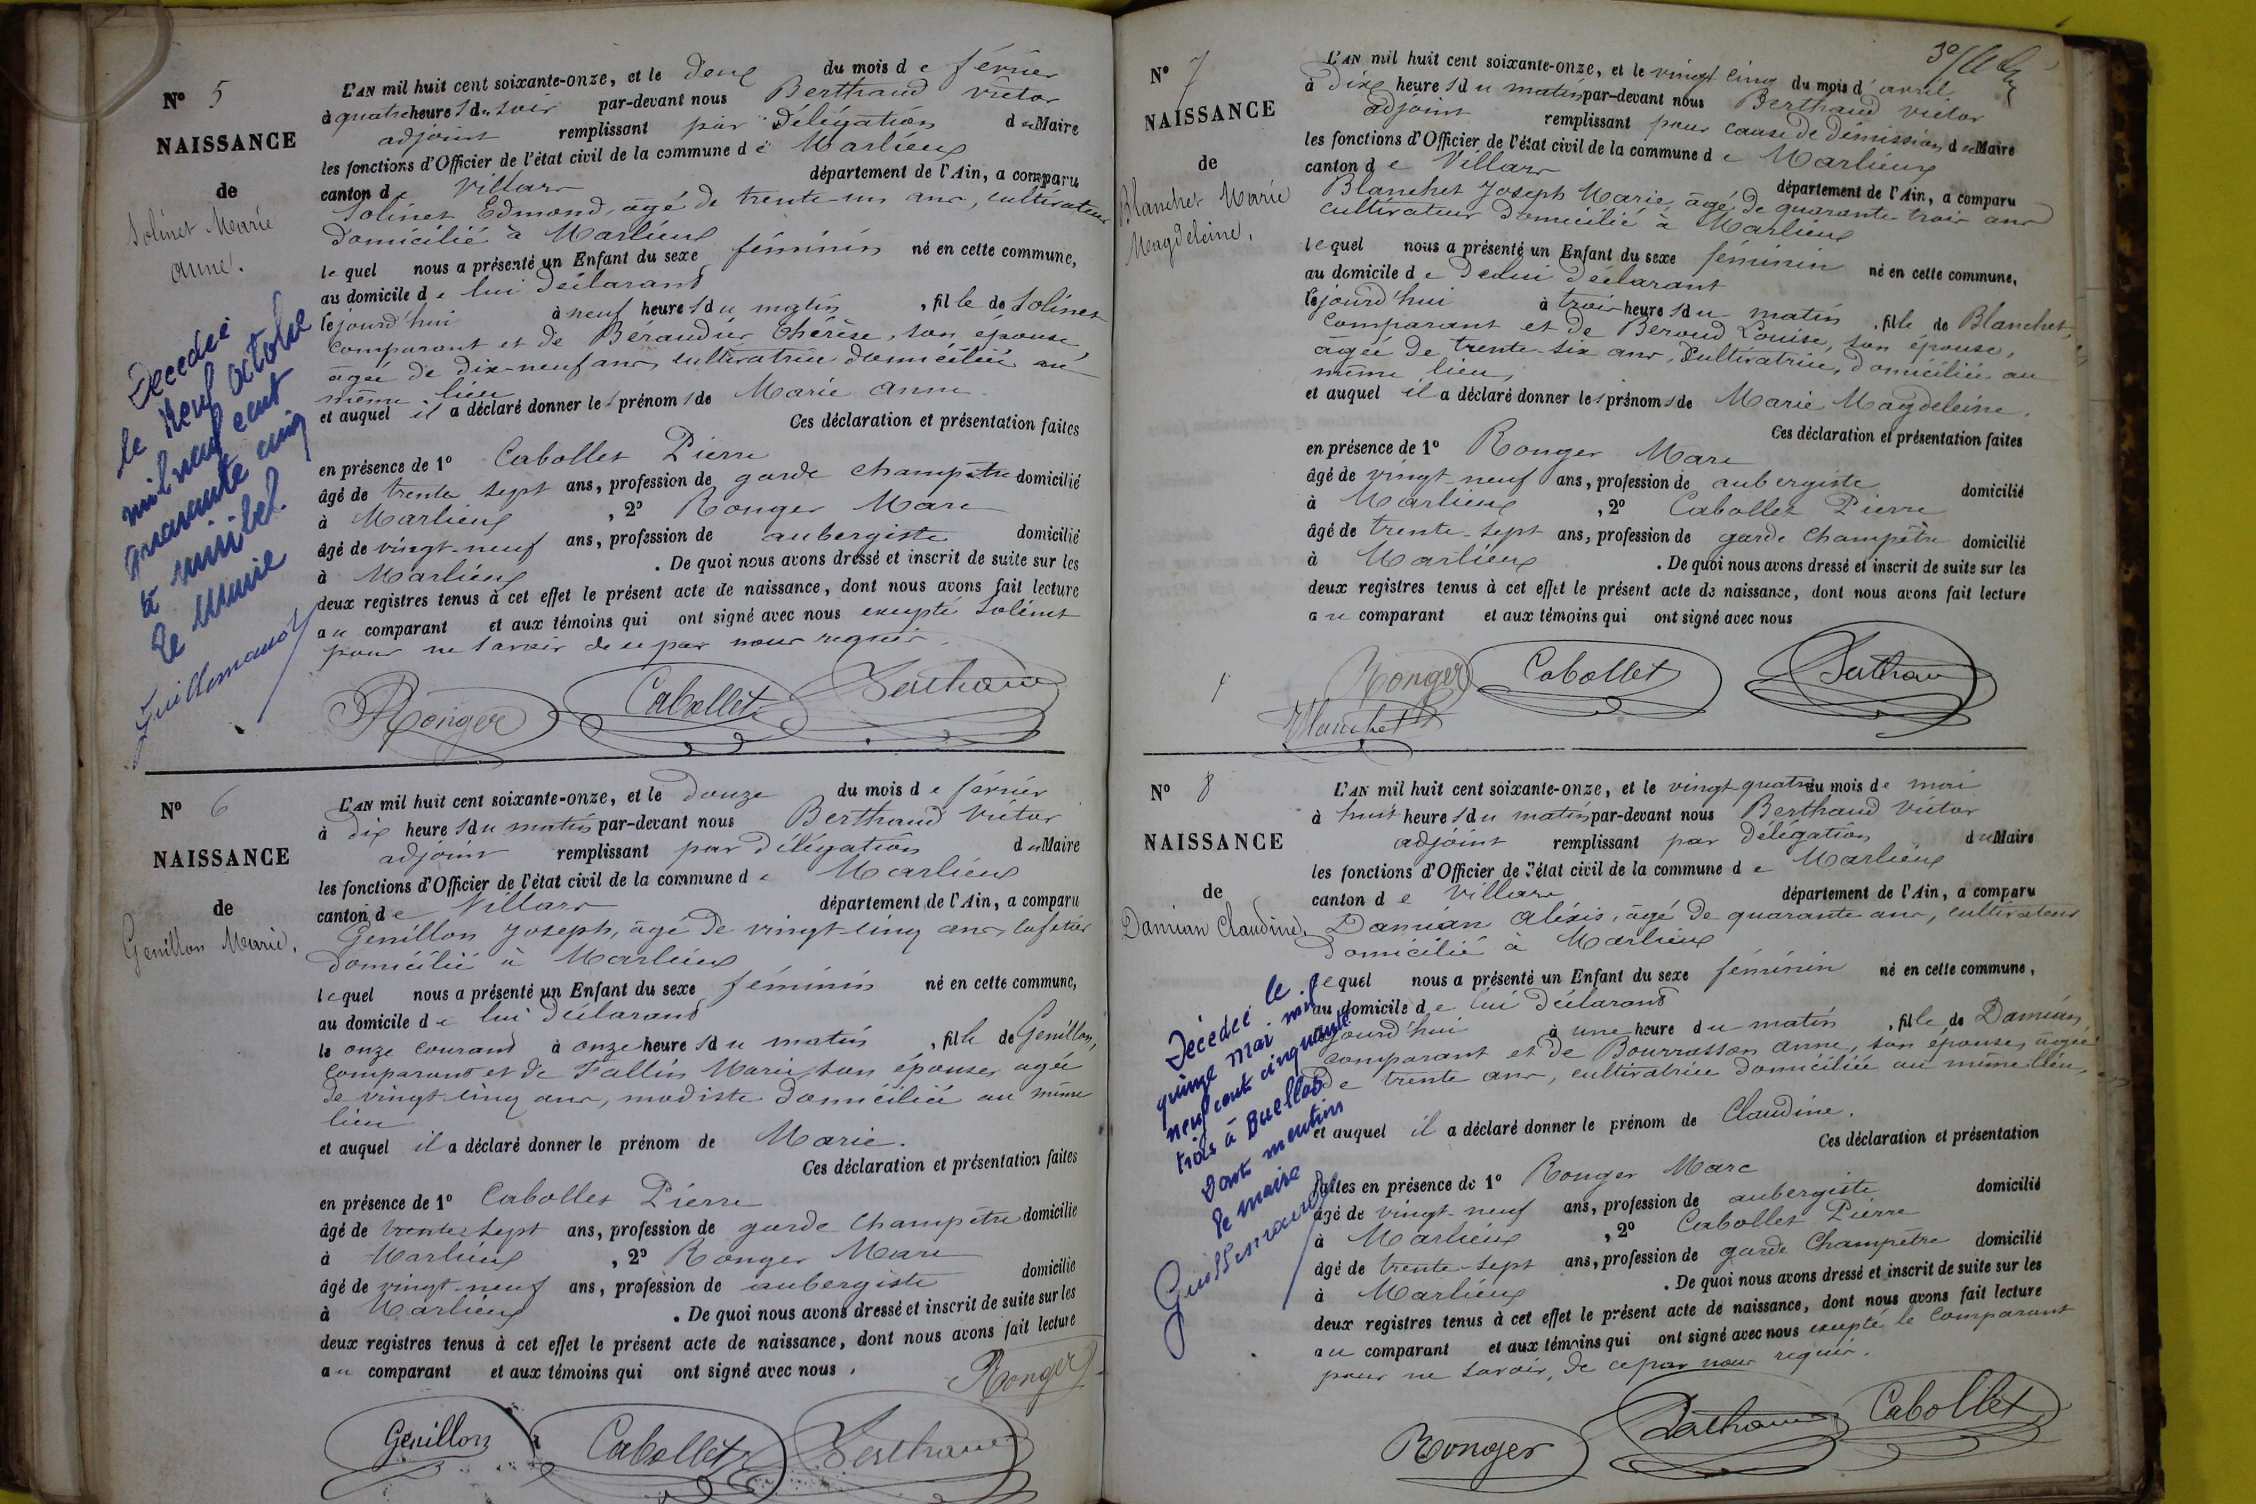 N° 5
NAISSANCE
de
Solinet Marie
anne.
Décédée
le Neuf octobre
mil neuf cent
quarante cinq
à miribel.
le Maire
L'AN mil huit cent soixante-onze, et le deux du mois de février
à quatre heures du soir par-devant nous Berthaud Victor
adjoint remplissant par Délégation du Maire
les fonctions d'Officier de l'état civil de la commune de Marlieux
canton de Villars département de l'Ain, a comparu
Solinet Edmond, âgé de trente-un ans, cultivateur
domicilié à Marlieux
lequel nous a présenté un Enfant du sexe féminin né en cette commune,
au domicile de lui déclarant
le jourd'hui à neuf heures du matin, fille de Solinet
comparant et de Béraudier Thérèse, son épouse,
âgée de dix-neuf ans, cultivatrice domiciliée au
même lieu
et auquel il a déclaré donner les prénoms de Marie anne
Ces déclaration et présentation faites
en présence de 1° Cabollet Pierre
âgé de trente sept ans, profession de garde champêtre domicilié
à Marlieux, 2° Ronger Marc
âgé de vingt-neuf ans, profession de aubergiste domicilié
à Marlieux. De quoi nous avons dressé et inscrit de suite sur les
deux registres tenus à cet effet le présent acte de naissance, dont nous avons fait lecture
au comparant et aux témoins qui ont signé avec nous excepté Solinet
pour ne savoir de ce par nous requis.
Ronger Cabollet Berthaud
N° 6
NAISSANCE
de
Genillon Marie.
L'AN mil huit cent soixante-onze, et le douze du mois de février
à dix heures du matin par-devant nous Berthaud Victor
adjoint remplissant par délégation du Maire
les fonctions d'Officier de l'état civil de la commune de Marlieux
canton de Villars département de l'Ain, a comparu
Genillon Joseph, âgé de vingt-cinq ans, cafetier
domicilié à Marlieux
lequel nous a présenté un Enfant du sexe féminin né en cette commune,
au domicile de lui déclarant
le onze courant à onze heures du matin, fille de Genillon,
comparant et de Fallin Marie, son épouse, agée
de vingt-cinq ans, modiste domiciliée au même
lieu
et auquel il a déclaré donner le prénom de Marie.
Ces déclaration et présentation faites
en présence de 1° Cabollet Pierre
âgé de trente sept ans, profession de garde champêtre domicilié
à Marlieux, 2° Ronger Marc
âgé de vingt-neuf ans, profession de aubergiste domicilié
à Marlieux. De quoi nous avons dressé et inscrit de suite sur les
deux registres tenus à cet effet le présent acte de naissance, dont nous avons fait lecture
au comparant et aux témoins qui ont signé avec nous.
Ronger
Genillon Cabollet Berthaud
N° 7
NAISSANCE
de
Blanchet Marie
Magdeleine.
L'AN mil huit cent soixante-onze, et le vingt cinq du mois d'avril
à dix heures du matin par-devant nous Berthaud Victor
adjoint remplissant pour cause de démission du Maire
les fonctions d'Officier de l'état civil de la commune de Marlieux
canton de Villars département de l'Ain, a comparu
Blanchet Joseph Marie, âgé de quarante-trois ans
cultivateur domicilié à Marlieux
lequel nous a présenté un Enfant du sexe féminin né en cette commune,
au domicile de delui déclarant
le jourd'hui à trois heures du matin, fille de Blanchet,
comparant et de Beroud Louise, son épouse,
âgée de trente-six ans, cultivatrice, domiciliée au
même lieu,
et auquel il a déclaré donner les prénoms de Marie Magdeleine.
Ces déclaration et présentation faites
en présence de 1° Ronger Marc
âgé de vingt-neuf ans, profession de aubergiste domicilié
à Marlieux, 2° Cabollet Pierre
âgé de trente-sept ans, profession de garde champêtre domicilié
à Marlieux. De quoi nous avons dressé et inscrit de suite sur les
deux registres tenus à cet effet le présent acte de naissance, dont nous avons fait lecture
au comparant et aux témoins qui ont signé avec nous
Ronger Cabollet Berthaud
Blanchet
N° 8
NAISSANCE
de
Damian Claudine.
Décédée le
quinze mai mil
neuf cent cinquante
trois à Buellas
Dont mention
le maire
L'AN mil huit cent soixante-onze, et le vingt quatre du mois de mai
à huit heures du matin par-devant nous Berthaud Victor
adjoint remplissant par délégation du Maire
les fonctions d'Officier de l'état civil de la commune de Marlieux
canton de Villars département de l'Ain, a comparu
Damian Aléxis, âgé de quarante ans, cultivateur
domicilié à Marlieux
lequel nous a présenté un Enfant du sexe féminin né en cette commune,
au domicile de lui déclarant
jourd'hui à une heure du matin, fille de Damian,
comparant et de Bourrasson anne, son épouse, âgée
de trente ans, cultivatrice domiciliée au même lieu,
et auquel il a déclaré donner le prénom de Claudine.
Ces déclaration et présentation
faites en présence de 1° Ronger Marc
âgé de vingt-neuf ans, profession de aubergiste domicilié
à Marlieux, 2° Cabollet Pierre
âgé de trente-sept ans, profession de garde champêtre domicilié
à Marlieux. De quoi nous avons dressé et inscrit de suite sur les
deux registres tenus à cet effet le présent acte de naissance, dont nous avons fait lecture
au comparant et aux témoins qui ont signé avec nous excepté le comparant
pour ne savoir, de ce par nous requis.
Ronger Berthaud Cabollet